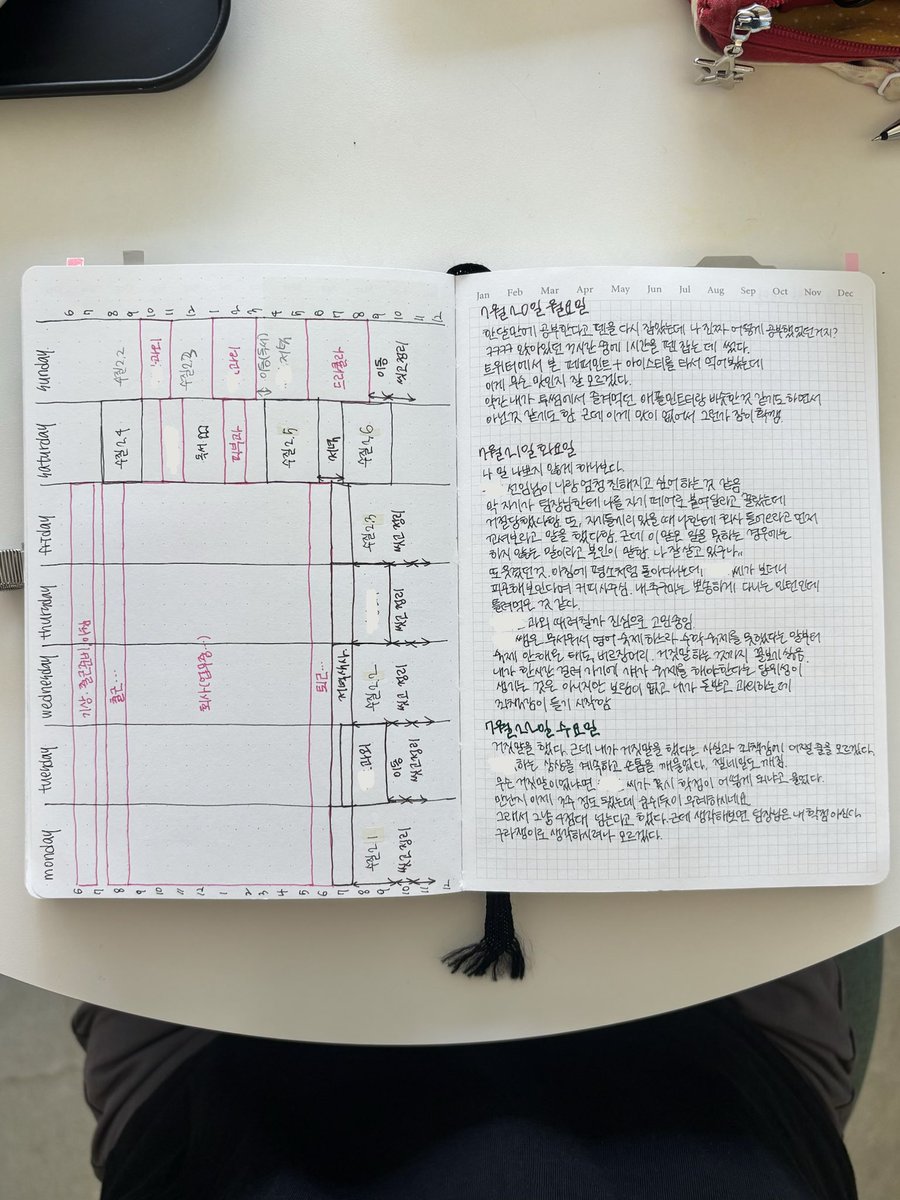 Jan Feb Mar Apr May Jun Jul Aug Sep Oct Nov Dec
7월 20일 월요일
한달만에 공부한다고 펜을 다시 잡았는데 나 진짜 어떻게 공부했었던거지?
ㅋㅋㅋㅋ 앉아있던 2시간 중에 1시간을 펜 잡는 데 썼다.
트위터에서 본 페퍼민트 + 아이스티를 타서 먹어봤는데
이게 무슨 맛인지 잘 모르겠다.
약간 내가 투썸에서 즐겨먹던 애플민트티랑 비슷한 것 같기도 하면서
아닌 것 같기도 함. 근데 이게 양이 없어서 그런가 잠이 확 깸.
7월 21일 화요일
나 일 나쁘지 않게 하나보다.
선임님이 나랑 엄청 친해지고 싶어 하는 것 같음
막 자기가 팀장님한테 나를 자기 페어로 붙여달라고 졸랐는데
거절당했나 함. 또, 자기들끼리 있을 때 나한테 회사 들어오라고 먼저
꼬셔보라고 말을 했다함. 근데 이 말은 일을 못하는 경우에는
하지 않는 말이라고 본인이 말함. 나 잘 살고 있구나..
또 웃겼던 것. 아침에 평소처럼 돌아다니는데, 씨가 보더니
피곤해보인다며 커피 사주심. 내 추구미는 뽀송하게 다니는 인턴인데
틀려먹은 것 같다.
과외 때려칠까 진심으로 고민중임
쌤은 무서워서 영어 숙제 하느라 수학 숙제를 못했다는 말부터
숙제 안해온 태도, 버르장머리. 거짓말 하는 것까지 꼴보기 싫음.
내가 한시간 걸려 가기에 쟤가 숙제를 해야한다는 당위성이
생기는 것은 아니지만 보람이 없고 내가 돈받고 과외하는데
죄책감이 들기 시작함
7월 22일 수요일
거짓말을 했다. 근데 내가 거짓말을 했다는 사실과 죄책감에 어쩔 줄을 모르겠다.
하는 상상을 계속하고 손톱을 깨물었다. 젤네일도 깨짐.
무슨 거짓말이었냐면, 씨가 혹시 학점이 어떻게 되냐고 물었다.
만난지 이제 3주 정도 됐는데 굉장히 무례하시네요
그래서 그냥 4점대 넘는다고 했다. 근데 생각해보면 팀장님은 내 학점 아신다.
구라쟁이로 생각하시려나 모르겠다.
6 7 8 9 10 11 12 1 2 3 4 5 6 7 8 9 10 11 12
sunday
수질2.2
과외
수질2.3
과외
이동(독서)
저녁
드라클라
이동
씻고 정리
saturday
수질2.4
독서
피부과
수질2.5
저녁
수질2.6
friday
수질2.3
씻고 정리
thursday
씻고 정리
wednesday
기상·출근준비
출근...
회사(업무중·)
퇴근...
저녁식사
수질2.2
씻고 정리
tuesday
과외
이동
씻고 정리
monday
수질2.1
씻고 정리
6 7 8 9 10 11 12 1 2 3 4 5 6 7 8 9 10 11 12